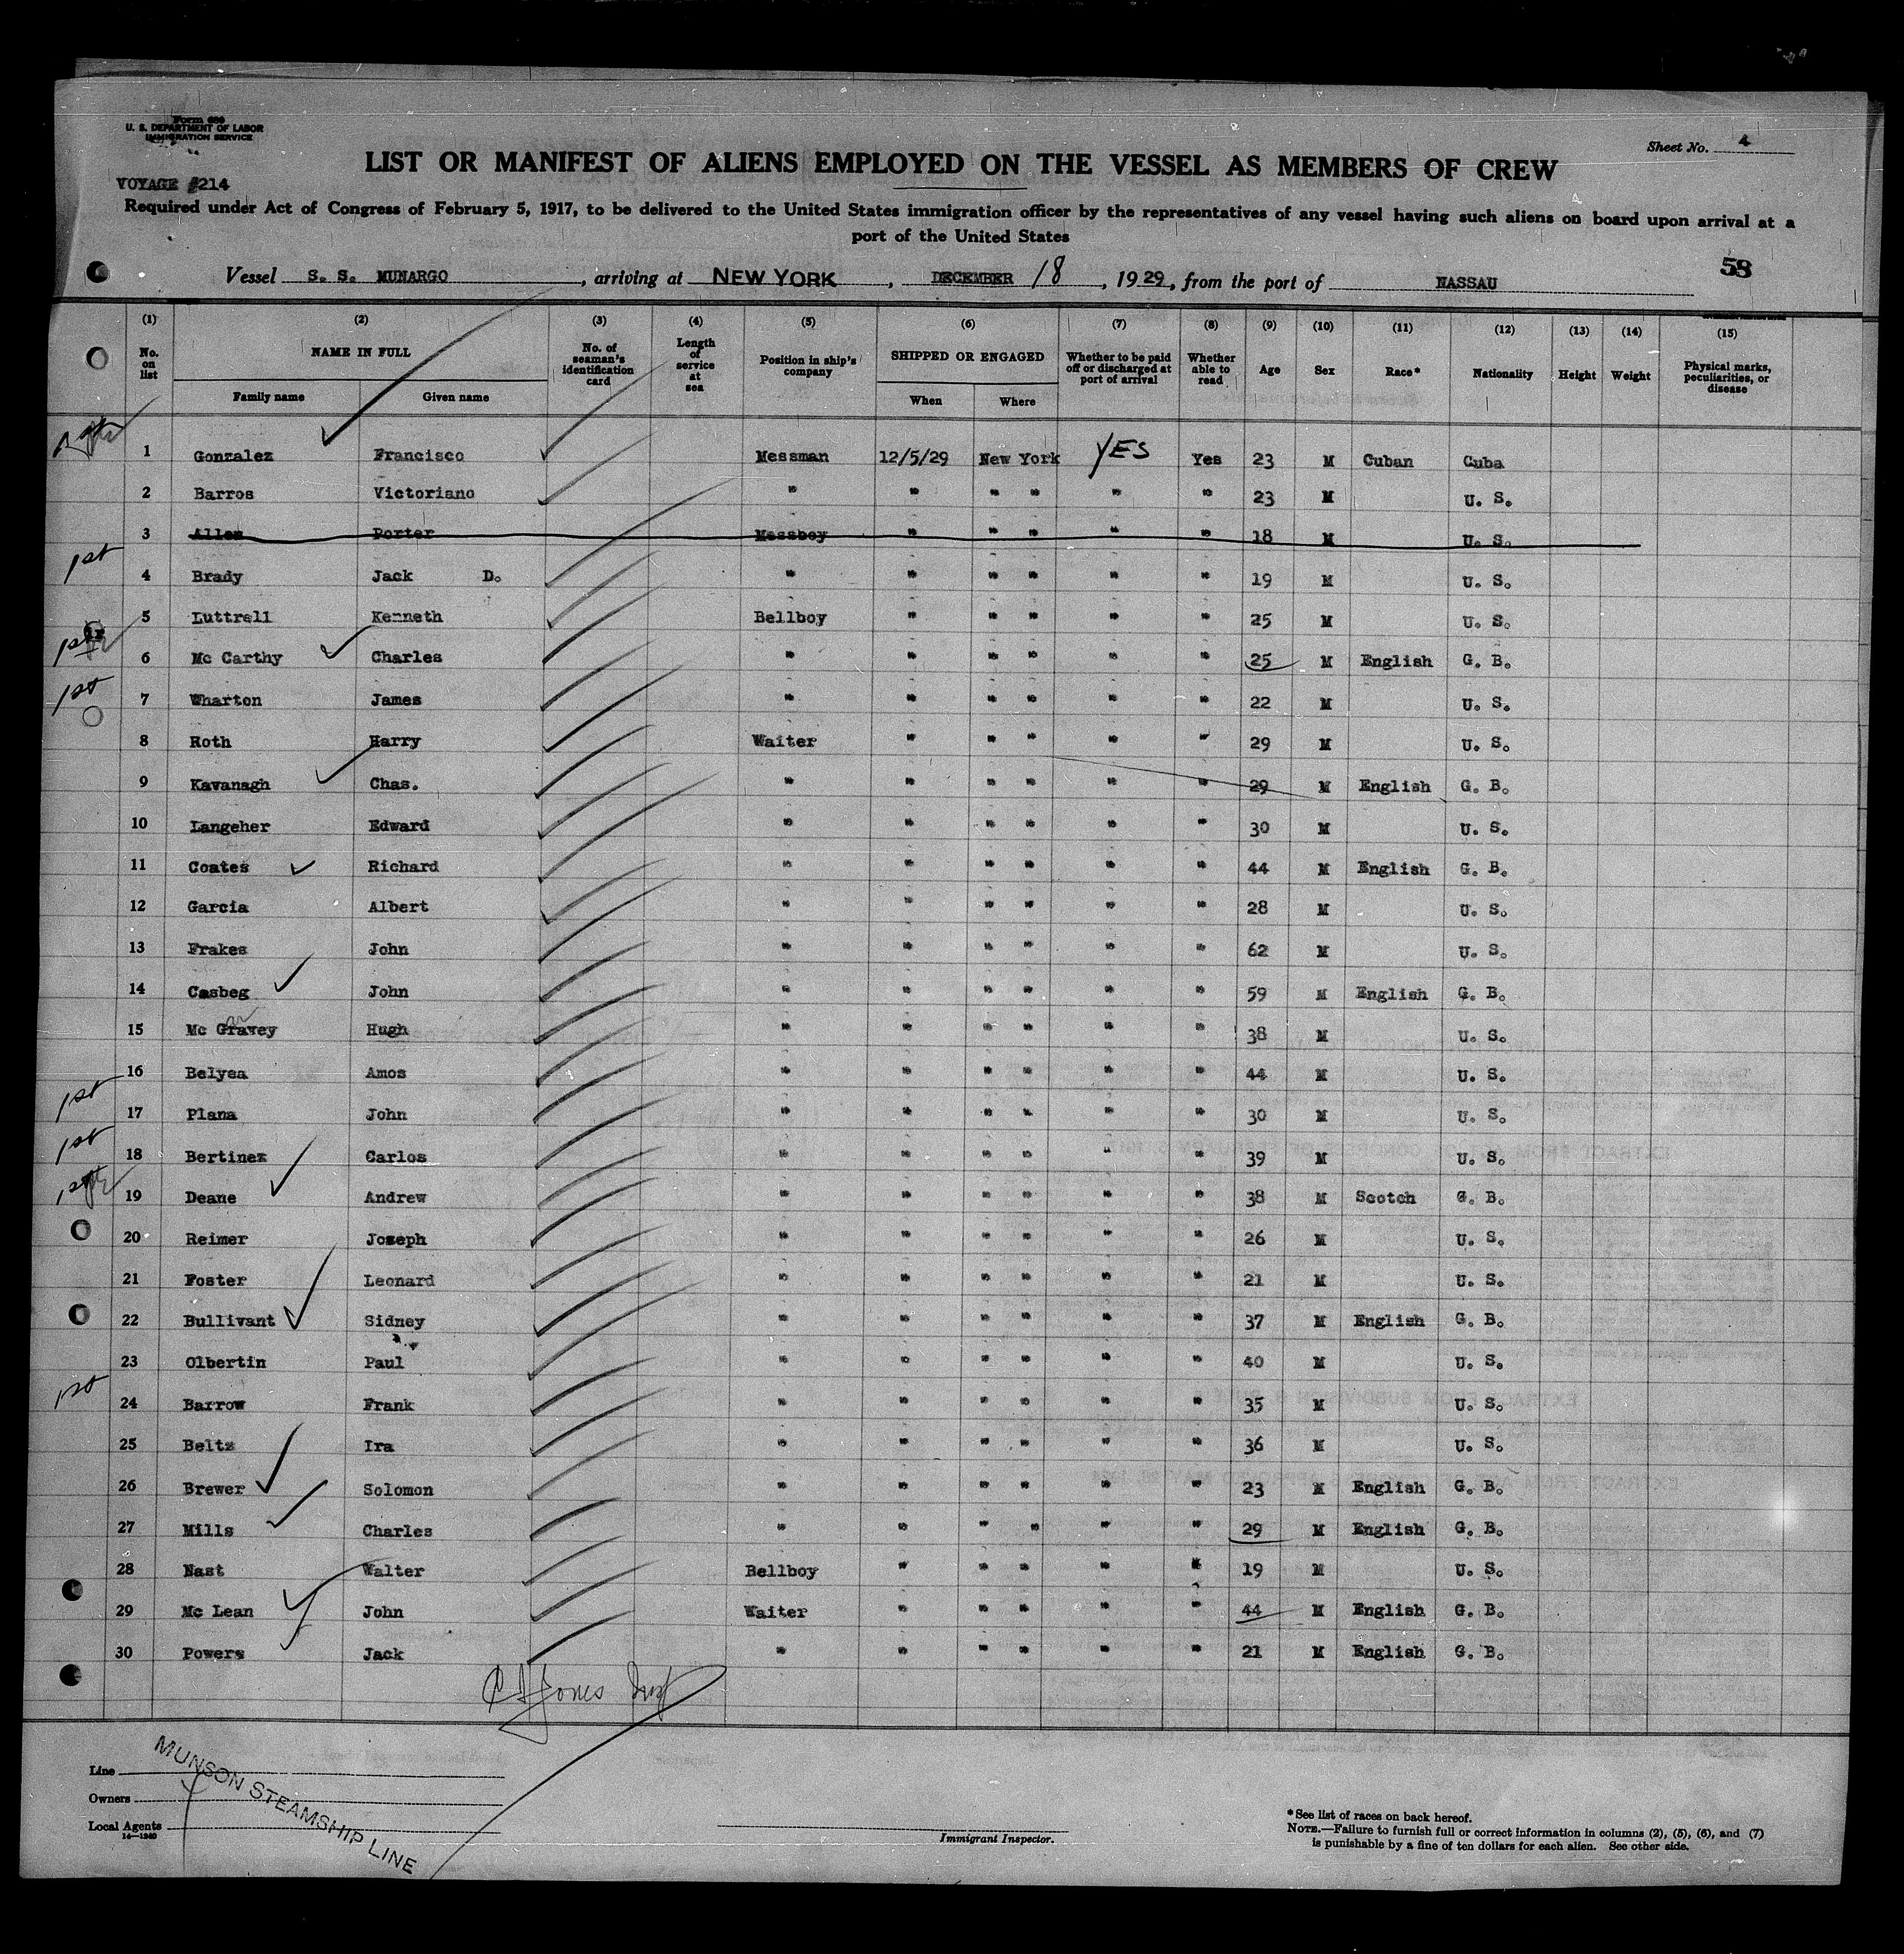 Form 689
U. S. DEPARTMENT OF LABOR
IMMIGRATION SERVICE
Sheet No. 4
LIST OR MANIFEST OF ALIENS EMPLOYED ON THE VESSEL AS MEMBERS OF CREW
VOYAGE #214
Required under Act of Congress of February 5, 1917, to be delivered to the United States immigration officer by the representatives of any vessel having such aliens on board upon arrival at a
port of the United States
58
Vessel S. S. MUNARGO, arriving at NEW YORK, DECEMBER 18, 1929, from the port of NASSAU
(1) (2) (3) (4) (5) (6) (7) (8) (9) (10) (11) (12) (13) (14) (15)
No. on list NAME IN FULL No. of seaman's identification card Length of service at sea Position in ship's company SHIPPED OR ENGAGED Whether to be paid off or discharged at port of arrival Whether able to read Age Sex Race* Nationality Height Weight Physical marks, peculiarities, or disease
Family name Given name When Where
1 Gonzalez Francisco Messman 12/5/29 New York YES Yes 23 M Cuban Cuba
2 Barros Victoriano " " " " " " 23 M U. S.
3 Allen Porter Messboy " " " " " 18 M U. S.
1st 4 Brady Jack D. " " " " " " 19 M U. S.
5 Luttrell Kenneth Bellboy " " " " " 25 M U. S.
1st 6 Mc Carthy Charles " " " " " " 25 M English G. B.
1st 7 Wharton James " " " " " " 22 M U. S.
8 Roth Harry Waiter " " " " " 29 M U. S.
9 Kavanagh Chas. " " " " " " 29 M English G. B.
10 Langeher Edward " " " " " " 30 M U. S.
11 Coates Richard " " " " " " 44 M English G. B.
12 Garcia Albert " " " " " " 28 M U. S.
13 Frakes John " " " " " " 62 M U. S.
14 Casbeg John " " " " " " 59 M English G. B.
15 Mc Gravey Hugh " " " " " " 38 M U. S.
16 Belyea Amos " " " " " " 44 M U. S.
1st 17 Plana John " " " " " " 30 M U. S.
1st 18 Bertinez Carlos " " " " " " 39 M U. S.
1st 19 Deane Andrew " " " " " " 38 M Scotch G. B.
20 Reimer Joseph " " " " " " 26 M U. S.
21 Foster Leonard " " " " " " 21 M U. S.
22 Bullivant Sidney " " " " " " 37 M English G. B.
23 Olbertin Paul " " " " " " 40 M U. S.
1st 24 Barrow Frank " " " " " " 35 M U. S.
25 Beltz Ira " " " " " " 36 M U. S.
26 Brewer Solomon " " " " " " 23 M English G. B.
27 Mills Charles " " " " " " 29 M English G. B.
28 Nast Walter Bellboy " " " " " 19 M U. S.
29 Mc Lean John Waiter " " " " " 44 M English G. B.
30 Powers Jack " " " " " " 21 M English G. B.
Jones
Line
Owners
Local Agents
14—1240
MUNSON STEAMSHIP LINE
Immigrant Inspector.
*See list of races on back hereof.
NOTE.—Failure to furnish full or correct information in columns (2), (5), (6), and (7)
is punishable by a fine of ten dollars for each alien. See other side.